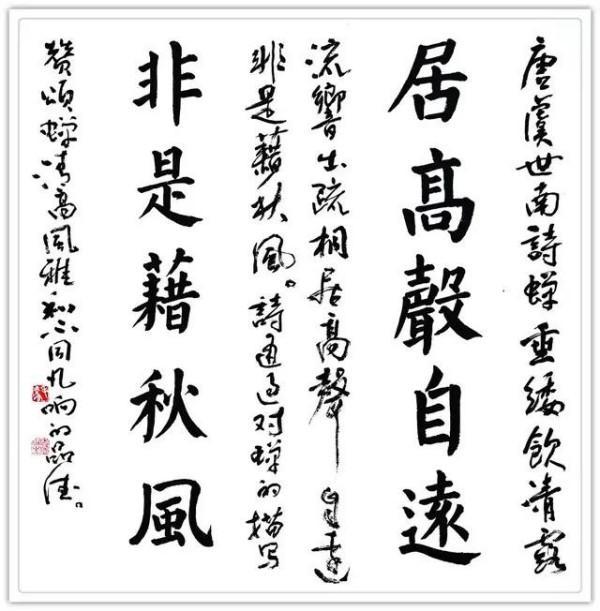 唐虞世南詩蝉垂緌飲清露
居髙聲自遠
流響出疏桐居高聲自遠
非是藉秋風。詩通过对蝉的描写
非是藉秋風
赞頌蝉清高風雅和不同凡响的品德。